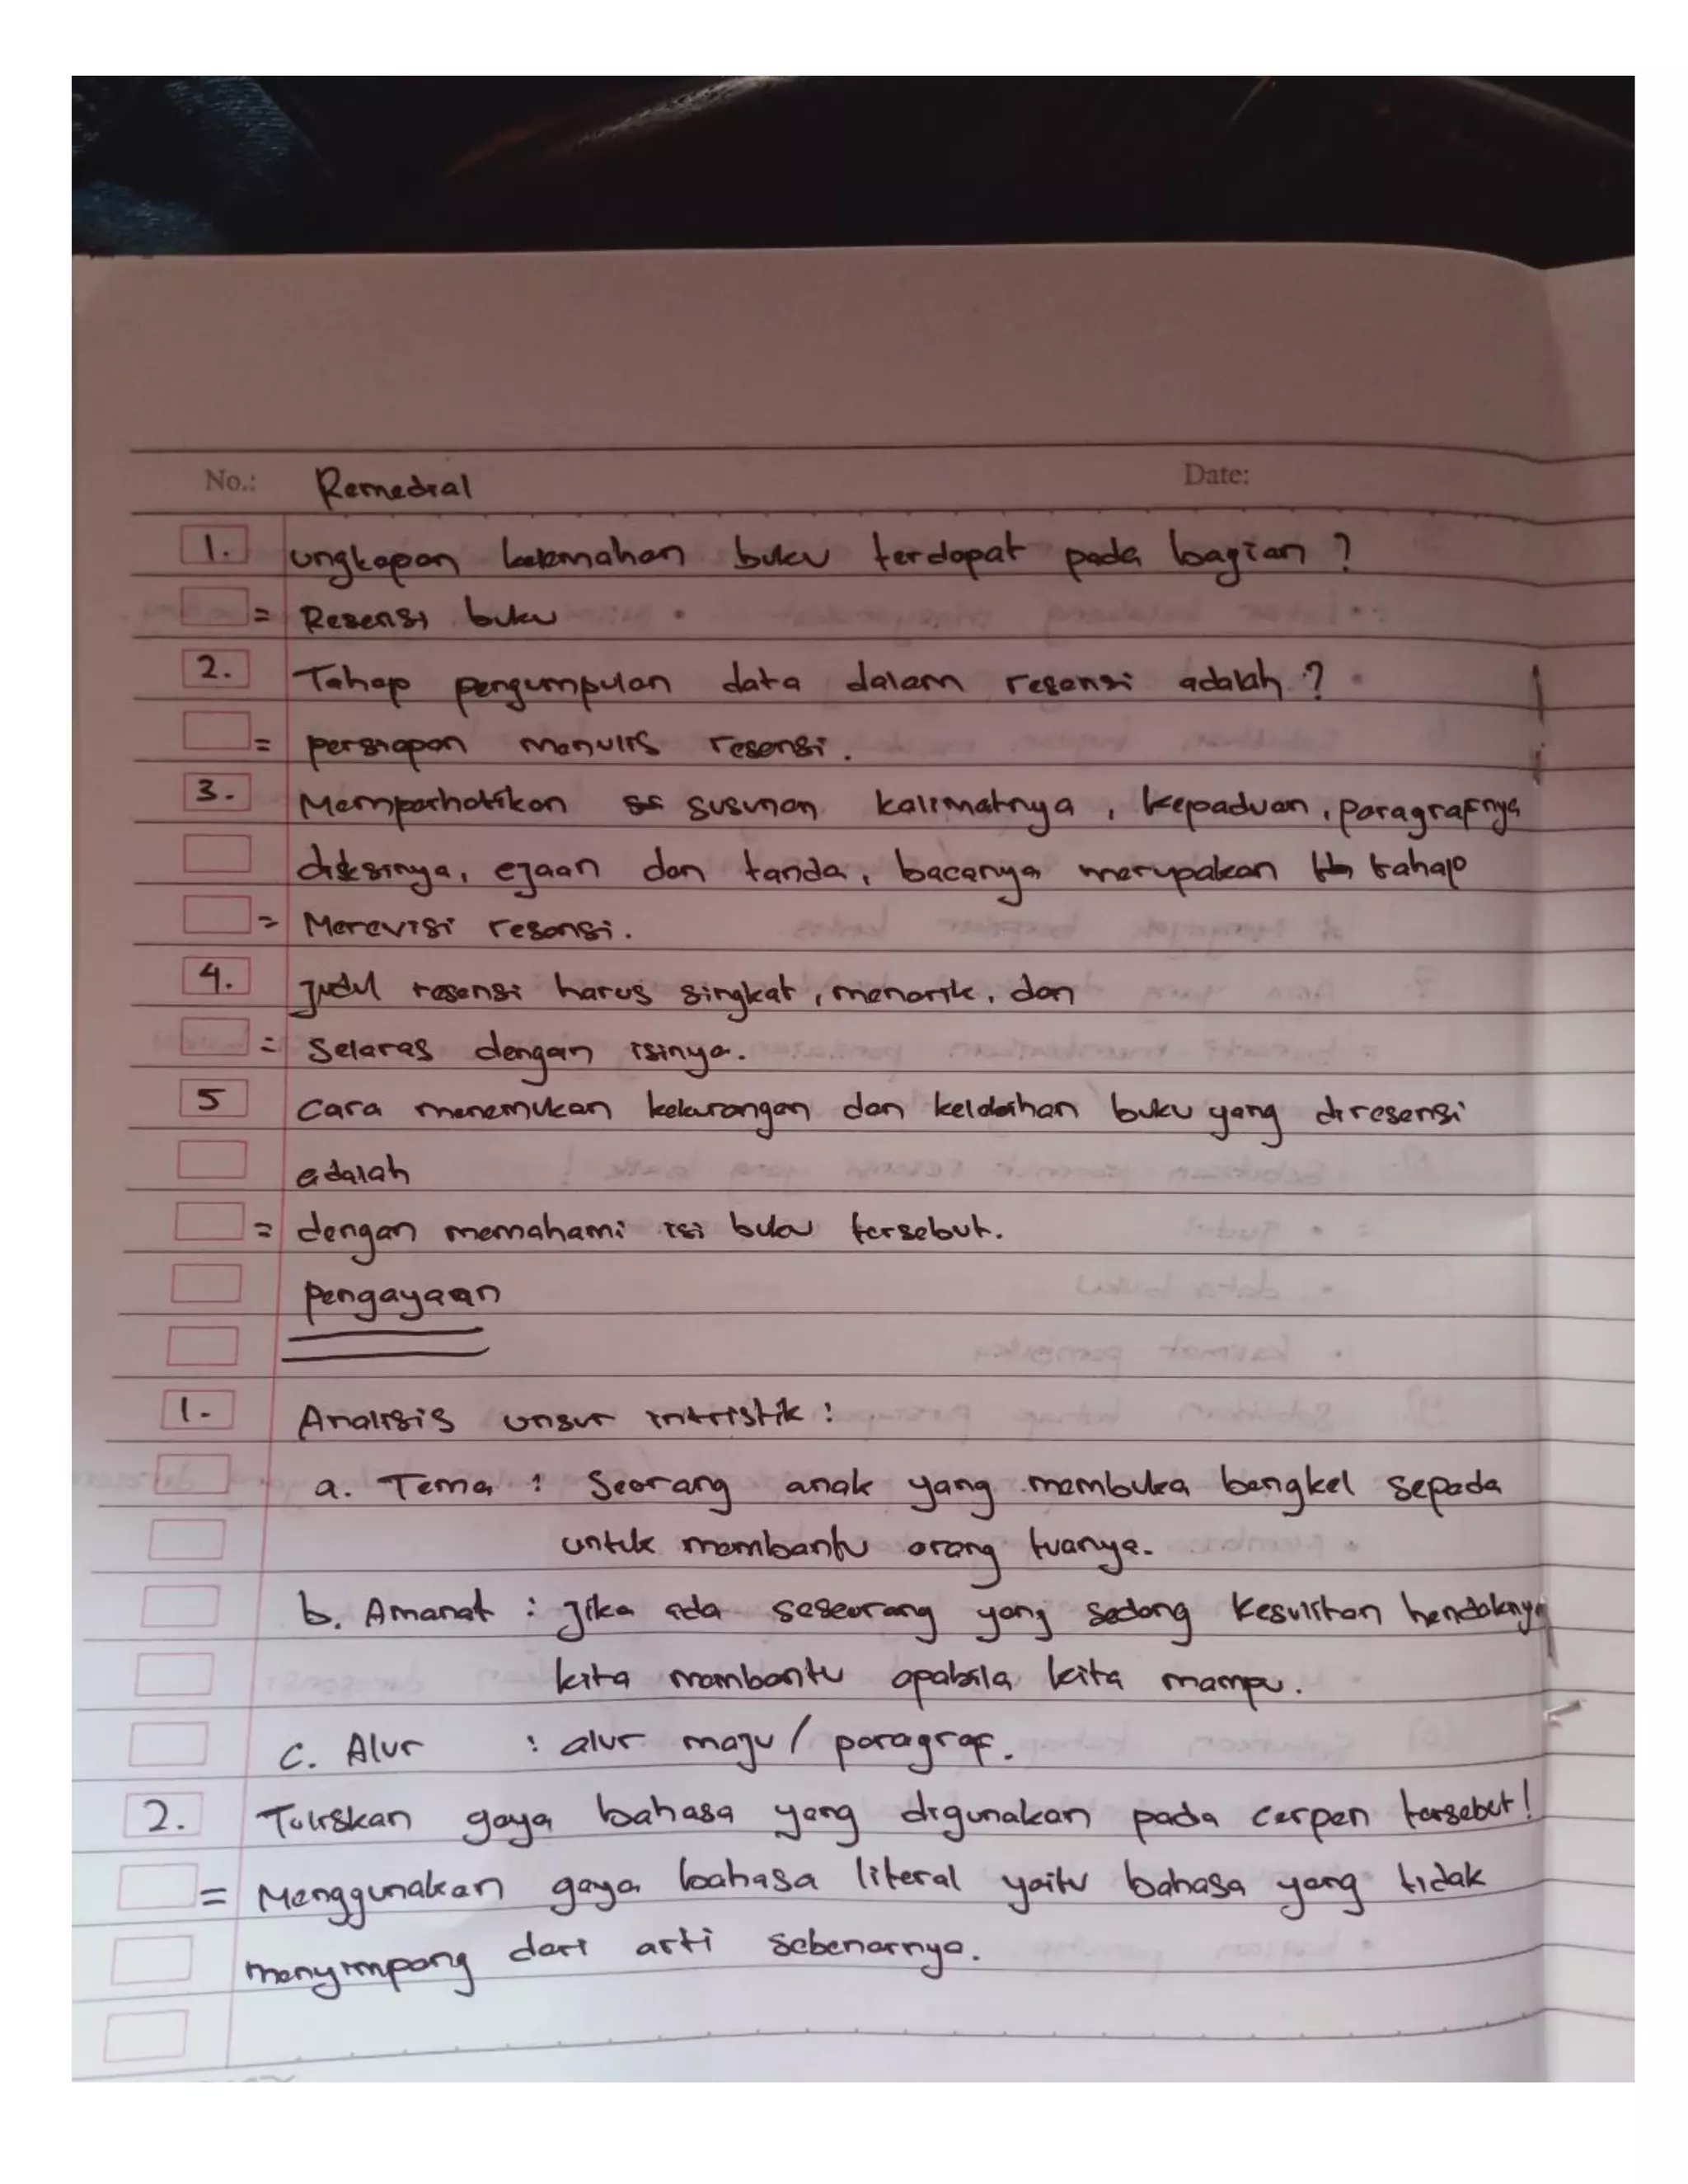 No.: Remedial Date:
1. Ungkapan kelemahan buku terdapat pada bagian ?
= Resensi buku
2. Tahap pengumpulan data dalam resensi adalah ?
= persiapan menulis resensi .
3. Memperhatikan susunan kalimatnya , kepaduan , paragrafnya
diksinya, ejaan dan tanda, bacanya merupakan tahap
= Merevisi resensi .
4. Judul resensi harus singkat , menarik, dan
= Selaras dengan isinya .
5 Cara menemukan kekurangan dan kelebihan buku yang diresensi
adalah
= dengan memahami isi buku tersebut.
Pengayaan
1. Analisis unsur intristik :
a. Tema : Seorang anak yang membuka bengkel sepeda
untuk membantu orang tuanya.
b. Amanat : Jika ada seseorang yang sedang kesulitan hendaknya
kita membantu apabila kita mampu .
c. Alur : alur maju / paragraf .
2. Tuliskan gaya bahasa yang digunakan pada cerpen tersebut !
= Menggunakan gaya bahasa literal yaitu bahasa yang tidak
menyimpang dari arti sebenarnya.